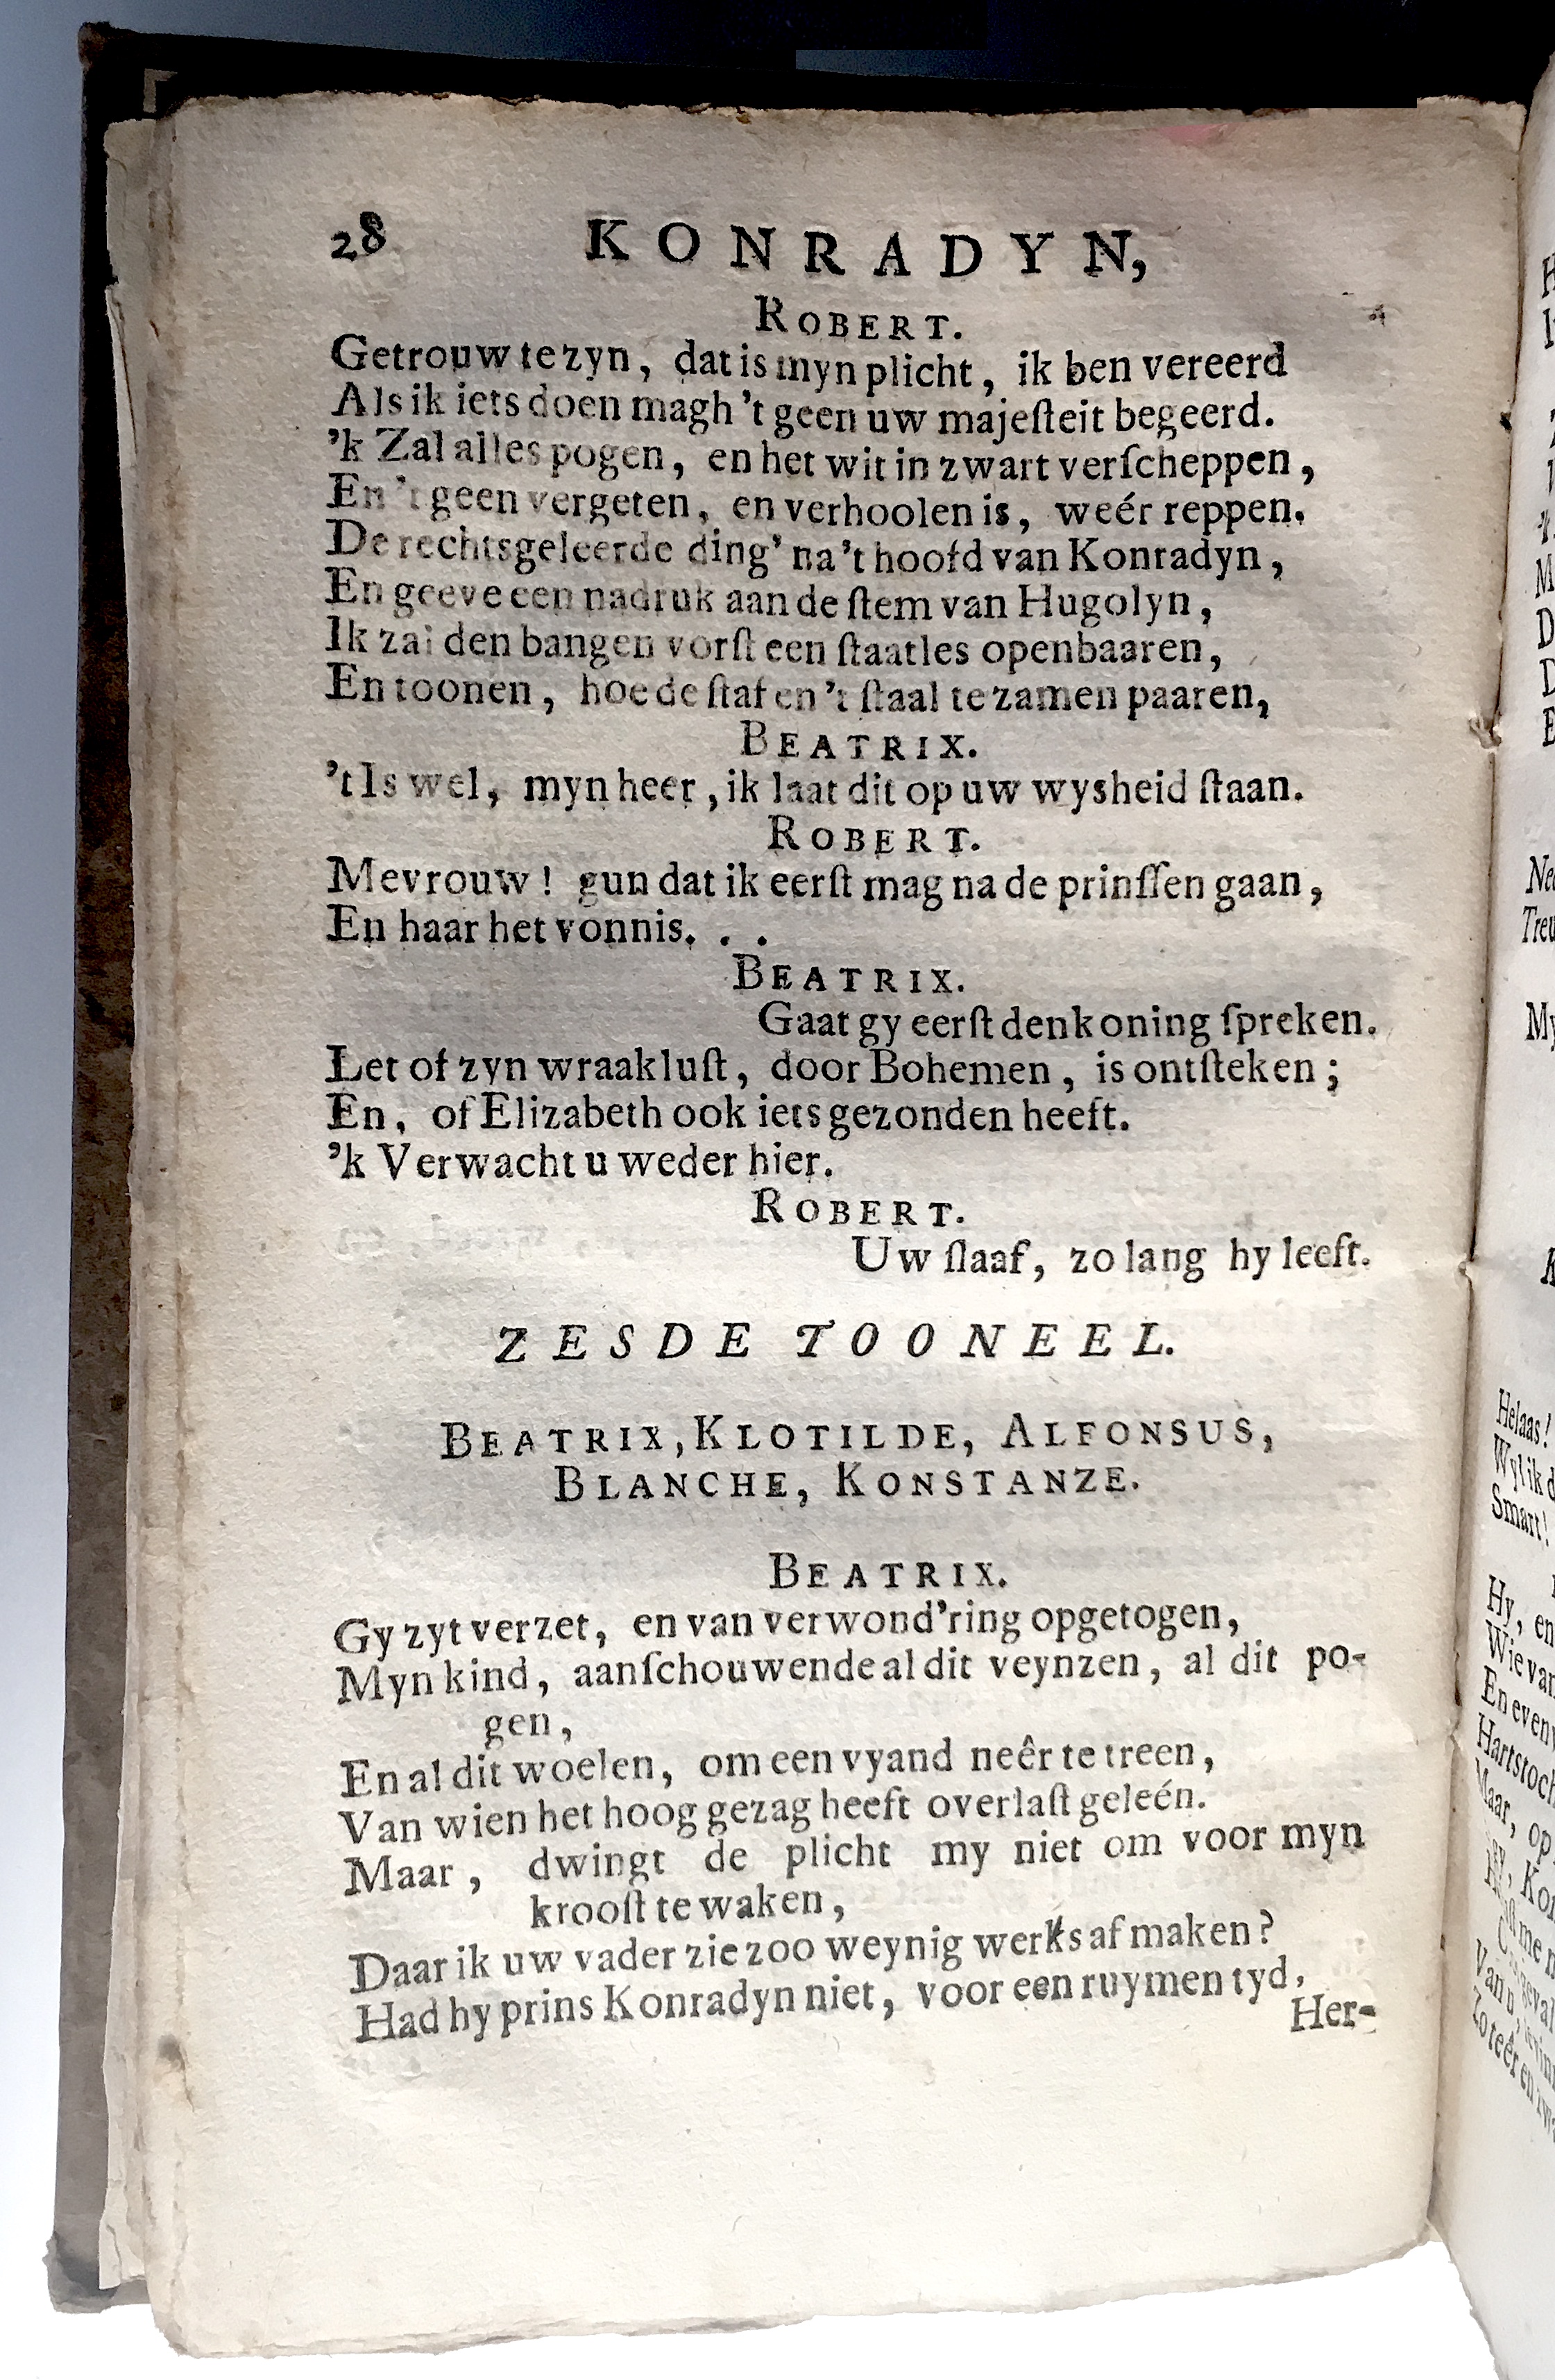 28 KONRADYN,
ROBERT.
Getrouw te zyn, dat is myn plicht, ik ben vereerd
Als ik iets doen magh 't geen uw majeſteit begeerd.
'k Zal alles pogen, en het wit in zwart verſcheppen,
En 't geen vergeten, en verhoolen is, weér reppen.
De rechtsgeleerde ding' na 't hoofd van Konradyn,
En geeve een nadruk aan de ſtem van Hugolyn,
Ik zal den bangen vorſt een ſtaatles openbaaren,
En toonen, hoe de ſtaf en 't ſtaal te zamen paaren,
BEATRIX.
't Is wel, myn heer, ik laat dit op uw wysheid ſtaan.
ROBERT.
Mevrouw! gun dat ik eerſt mag na de prinſſen gaan,
En haar het vonnis. . .
BEATRIX.
Gaat gy eerſt den koning ſpreken.
Let of zyn wraakluſt, door Bohemen, is ontſteken;
En, of Elizabeth ook iets gezonden heeft.
'k Verwacht u weder hier.
ROBERT.
Uw ſlaaf, zo lang hy leeft.
ZESDE TOONEEL.
BEATRIX, KLOTILDE, ALFONSUS,
BLANCHE, KONSTANZE.
BEATRIX.
Gy zyt verzet, en van verwond'ring opgetogen,
Myn kind, aanſchouwende al dit veynzen, al dit po-
gen,
En al dit woelen, om een vyand neêr te treen,
Van wien het hoog gezag heeft overlaſt geleén.
Maar, dwingt de plicht my niet om voor myn
krooſt te waken,
Daar ik uw vader zie zoo weynig werks af maken?
Had hy prins Konradyn niet, voor een ruymen tyd,
Her-
Helaas!
Smart!
Hy, en